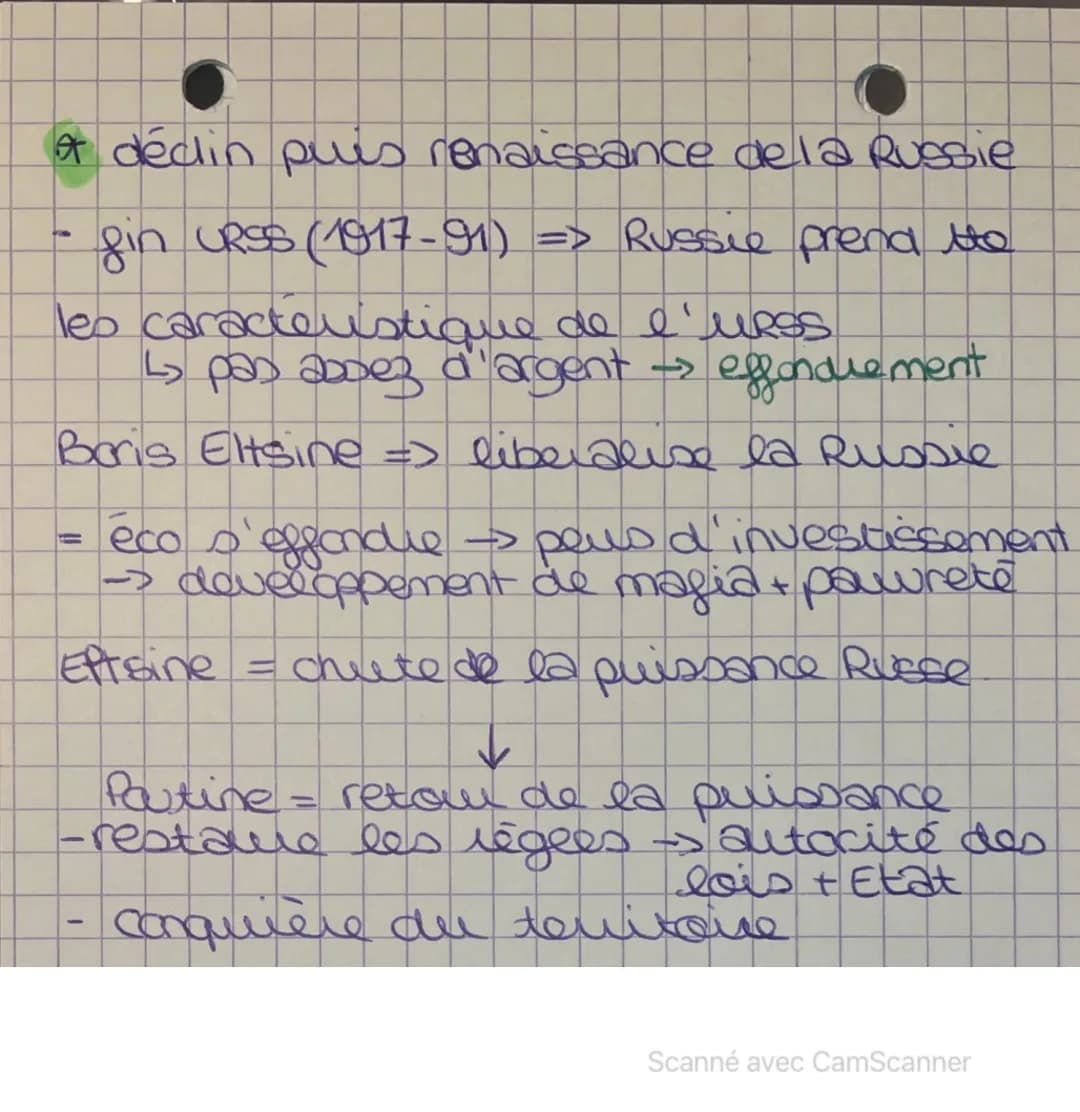 * déclin puis renaissance de la Russie
- fin URSS (1917-91) => Russie prend tte
les caractéristique de l'URSS
↳ pas assez d'argent → effondrement
Boris Eltsine => liberalise la Russie
= éco s'effondre → peus d'investissement
→ developpement de mafia + pauvreté
Eltsine = chute de la puissance Russe
↓
Poutine = retour de la puissance
- restaure les régles → autorité des
lois + Etat
- conquière du territoire
Scanné avec CamScanner